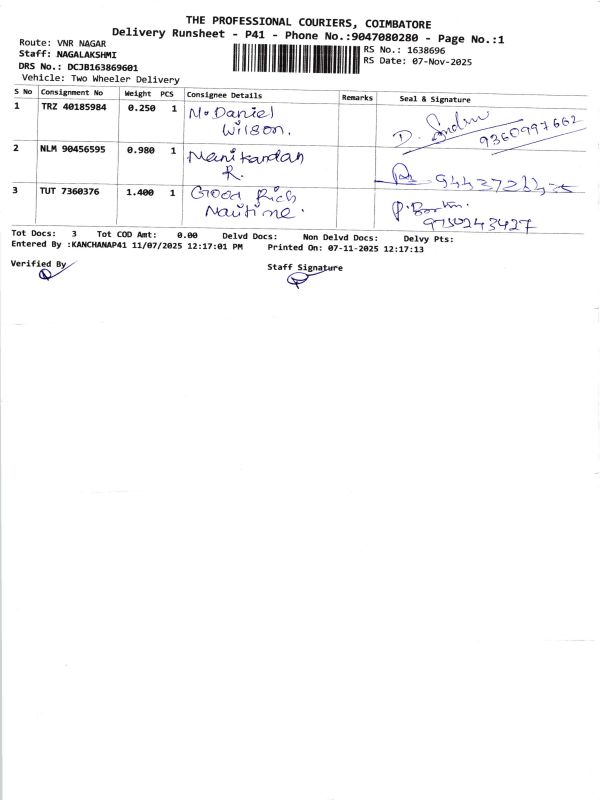 THE PROFESSIONAL COURIERS, COIMBATORE
Delivery Runsheet - P41 - Phone No.:9047080280 - Page No.:1
Route: VNR NAGAR
RS No.: 1638696
Staff: NAGALAKSHMI
RS Date: 07-Nov-2025
DRS No.: DCJB163869601
Vehicle: Two Wheeler Delivery
S No Consignment No Weight PCS Consignee Details Remarks Seal & Signature
1 TRZ 40185984 0.250 1 M. Daniel
Wilson.
D.
9360997662
2 NLM 90456595 0.980 1 Manikandan
R.
3 TUT 7360376 1.400 1 Good Rich
Nautime.
9750243427
Tot Docs: 3 Tot COD Amt: 0.00 Delvd Docs: Non Delvd Docs: Delvy Pts:
Entered By :KANCHANAP41 11/07/2025 12:17:01 PM Printed On: 07-11-2025 12:17:13
Verified By
Staff Signature